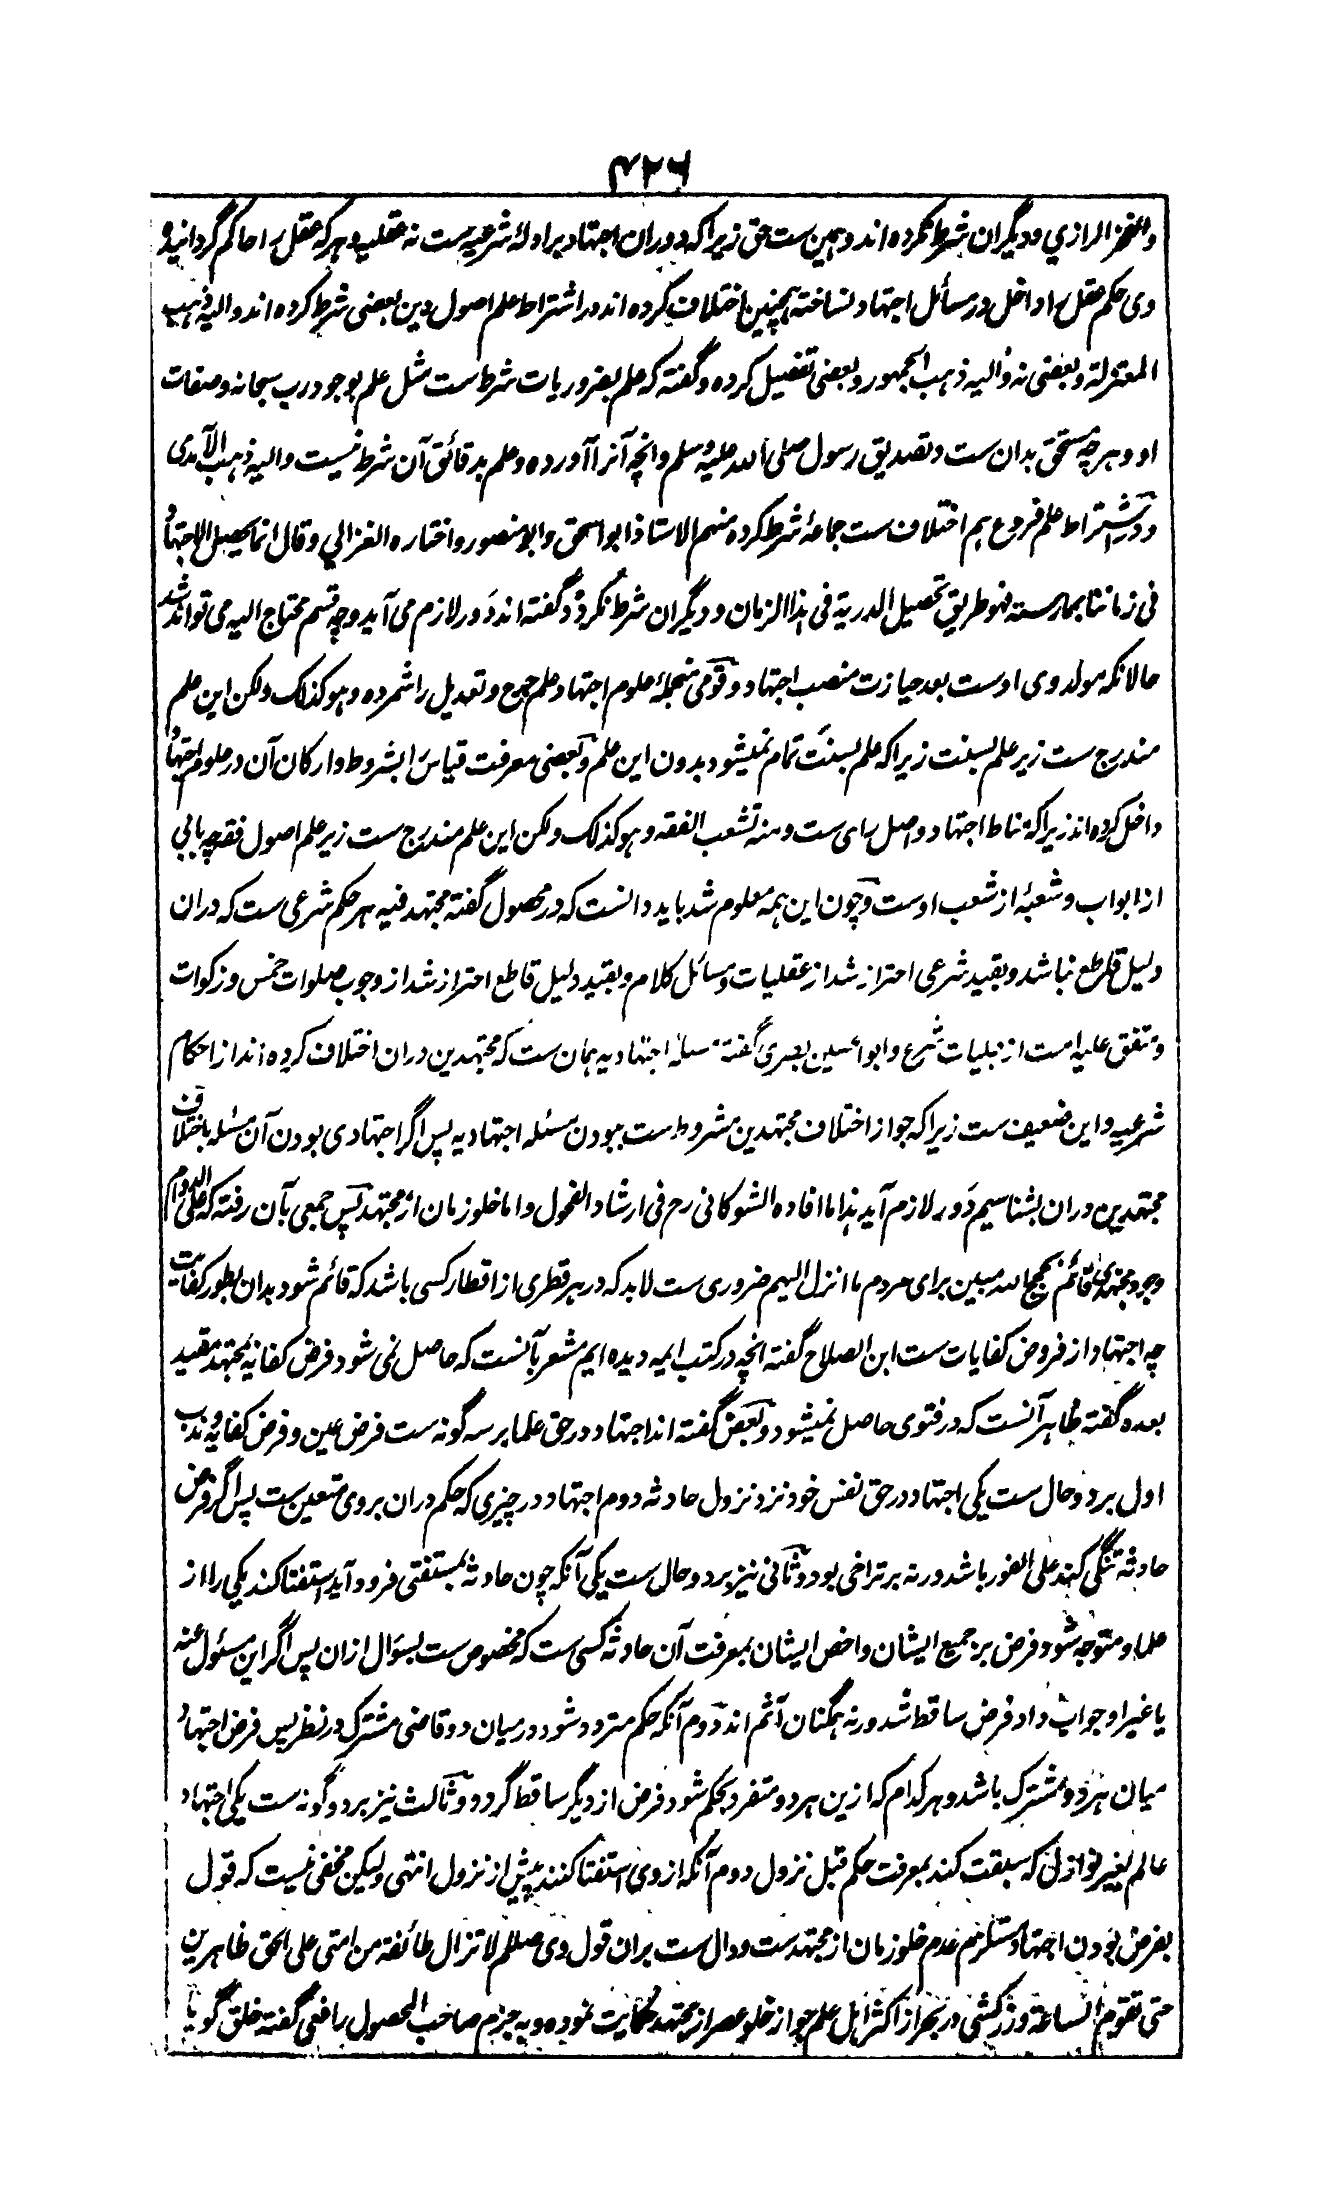 ۴۲۶
والفخر الرازي و دیگران شرط نکرده اند و همین ست حق زیرا که دوران اجتهاد بر ادلهٔ شرعیه ست نه عقلیه و هر که عقل را حاکم گردانیده
وی حکم عقل را داخل در مسائل اجتهاد نساخته همچنین اختلاف کرده اند در اشتراط علم اصول دین بعضی شرط کرده اند و الیه ذهب
المعتزلة و بعضی نه و الیه ذهب الجمهور و بعضی تفصیل کرده و گفته که علم بضروریات شرط ست مثل علم بوجود رب سبحانه و صفات
او و هر چه مستحق بدان ست و تصدیق رسول صلی الله علیه وسلم و انچه آنرا آورده و علم بدقائق آن شرط نیست و الیه ذهب الآمدی
و در اشتراط علم فروع هم اختلاف ست جماعهٔ شرط کرده منهم الاستاذ ابو اسحق و ابو منصور و اختاره الغزالي و قال انما یحصل الاجتهاد
فی زماننا بممارسته فهو طریق تحصیل الدریة فی هذا الزمان و دیگران شرط نکرده و گفته اند دور لازم می آید و چه قسم محتاج الیه می تواند شد
حالانکه مولد وی اوست بعد حیازت منصب اجتهاد و قومی منجملهٔ علوم اجتهاد علم جرح و تعدیل را شمرده و هو کذلک ولکن این علم
مندرج ست زیر علم بسنت زیرا که علم بسنت تمام نمیشود بدون این علم و بعضی معرفت قیاس را بشروط و ارکان آن در علوم اجتهاد
داخل کرده اند زیرا که مناط اجتهاد و اصل رای ست و منه تشعب الفقه و هو کذلک ولکن این علم مندرج ست زیر علم اصول فقه چه بابی
از ابواب و شعبهٔ از شعب اوست و چون این همه معلوم شد باید دانست که در محصول گفته مجتهد فیه هر حکم شرعی ست که دران
دلیل قاطع نباشد و بقید شرعی احتراز شد از عقلیات و مسائل کلام و بقید دلیل قاطع احتراز شد از وجوب صلوات خمس و زکوات
و متفق علیه امت از جلیات شرع و ابو الحسین بصری گفته مسئلهٔ اجتهادیه همان ست که مجتهدین دران اختلاف کرده اند از احکام
شرعیه و این ضعیف ست زیرا که جواز اختلاف مجتهدین مشروط ست ببودن مسئله اجتهادیه پس اگر اجتهادی بودن آن مسئله باختلاف
مجتهدین دران بشناسیم دور لازم آید هذا ما افاده الشوکانی رح فی ارشاد الفحول و اما خلو زمان از مجتهد پس جمعی بآن رفته که علی الدوام
وجود مجتهدی قائم بحجج الله مبین برای مردم ما انزل الیهم ضروری ست لابد که در هر قطری از اقطار کسی باشد که قائم شود بدان بطور کفایت
چه اجتهاد از فروض کفایات ست ابن الصلاح گفته انچه در کتب ایمه دیده ایم مشعر بآنست که حاصل نمی شود فرض کفایه بمجتهد مقید
بعده گفته ظاهر آنست که در فتوی حاصل نمیشود و بعض گفته اند اجتهاد در حق علما بر سه گونه ست فرض عین و فرض کفایه و ندب
اول بر دو حال ست یکی اجتهاد در حق نفس خود نزد نزول حادثه دوم اجتهاد در چیزی که حکم دران بروی متعین ست پس اگر فرض
حادثه تنگی کند علی الفور باشد ورنه بر تراخی بود و ثانی نیز بر دو حال ست یکی آنکه چون حادثه بمستفتی فرود آید استفتا کند یکی را از
علما و متوجه شود فرض بر جمیع ایشان و اخص ایشان بمعرفت آن حادثه کسی ست که مخصوص ست بسؤال ازان پس اگر این مسئول عنه
یا غیر او جواب داد فرض ساقط شد ورنه همگنان آثم اند دوم آنکه حکم متردد شود در میان دو قاضی مشترک در نظر پس فرض اجتهاد
میان هر دو مشترک باشد و هر کدام که ازین هر دو متفرد بحکم شود فرض از دیگر ساقط گردد و ثالث نیز بر دو گونه ست یکی اجتهاد
عالم بغیر نوازل که سبقت کند بمعرفت حکم قبل نزول دوم آنکه از وی استفتا کنند پیش از نزول انتهی ولیکن مخفی نیست که قول
بفرض بودن اجتهاد مستلزم عدم خلو زمان از مجتهد ست و دال ست بران قول وی صللم لا تزال طائفة من امتی علی الحق ظاهرین
حتی تقوم الساعة و زرکشی در بحر از اکثر اهل علم جواز خلو عصر از مجتهد حکایت نموده و به جزم صاحب المحصول رافعی گفته خلق گویا